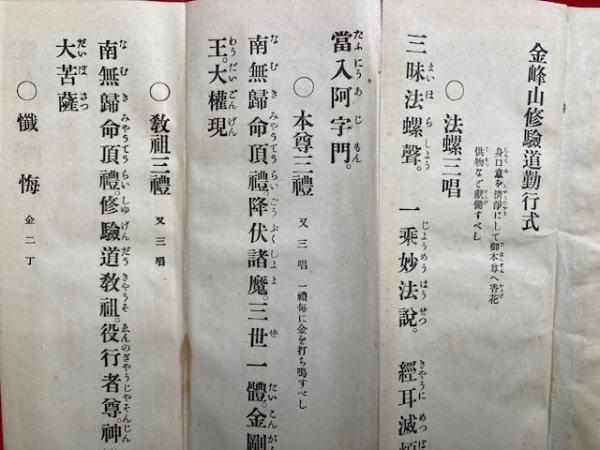 金峰山修驗道勤行式
身口意を淸淨にして御本尊へ香花
供物など獻備すべし
〇法螺三唱
三昧法螺聲。一乘妙法說。經耳滅煩
當入阿字門。
〇本尊三禮 又三唱 一禮每に金を打ち鳴すべし
南無歸命頂禮。降伏諸魔。三世一體。金剛
王。大權現
〇敎祖三禮 又三唱
南無歸命頂禮。修驗道敎祖。役行者尊。神
大菩薩
〇懺悔 金二丁